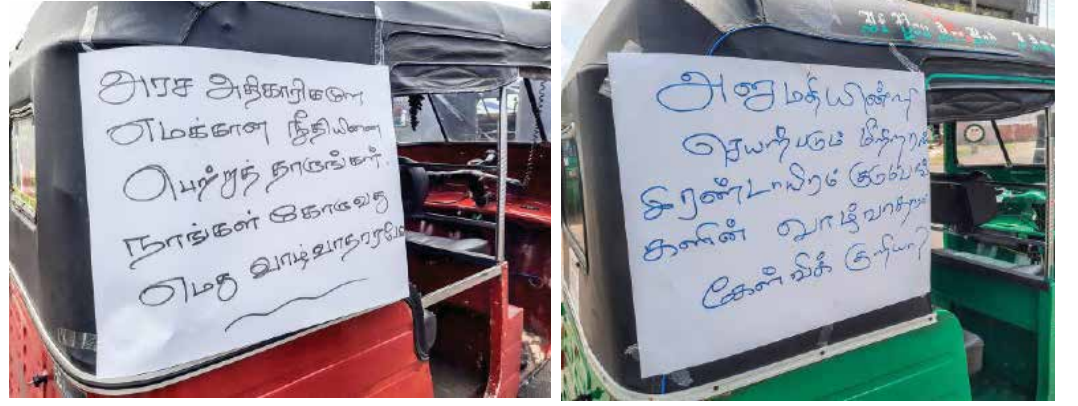 அரச அதிகாரிகளே
எமக்கான நீதியினை
பெற்றுத் தாருங்கள்.
நாங்கள் கோருவது
எமது வாழ்வாதாரமே
அனுமதியின்றி
செயற்படும் மீற்றரால்
இரண்டாயிரம் குடும்பங்
களின் வாழ்வாதாரம்
கேள்விக் குறியா?